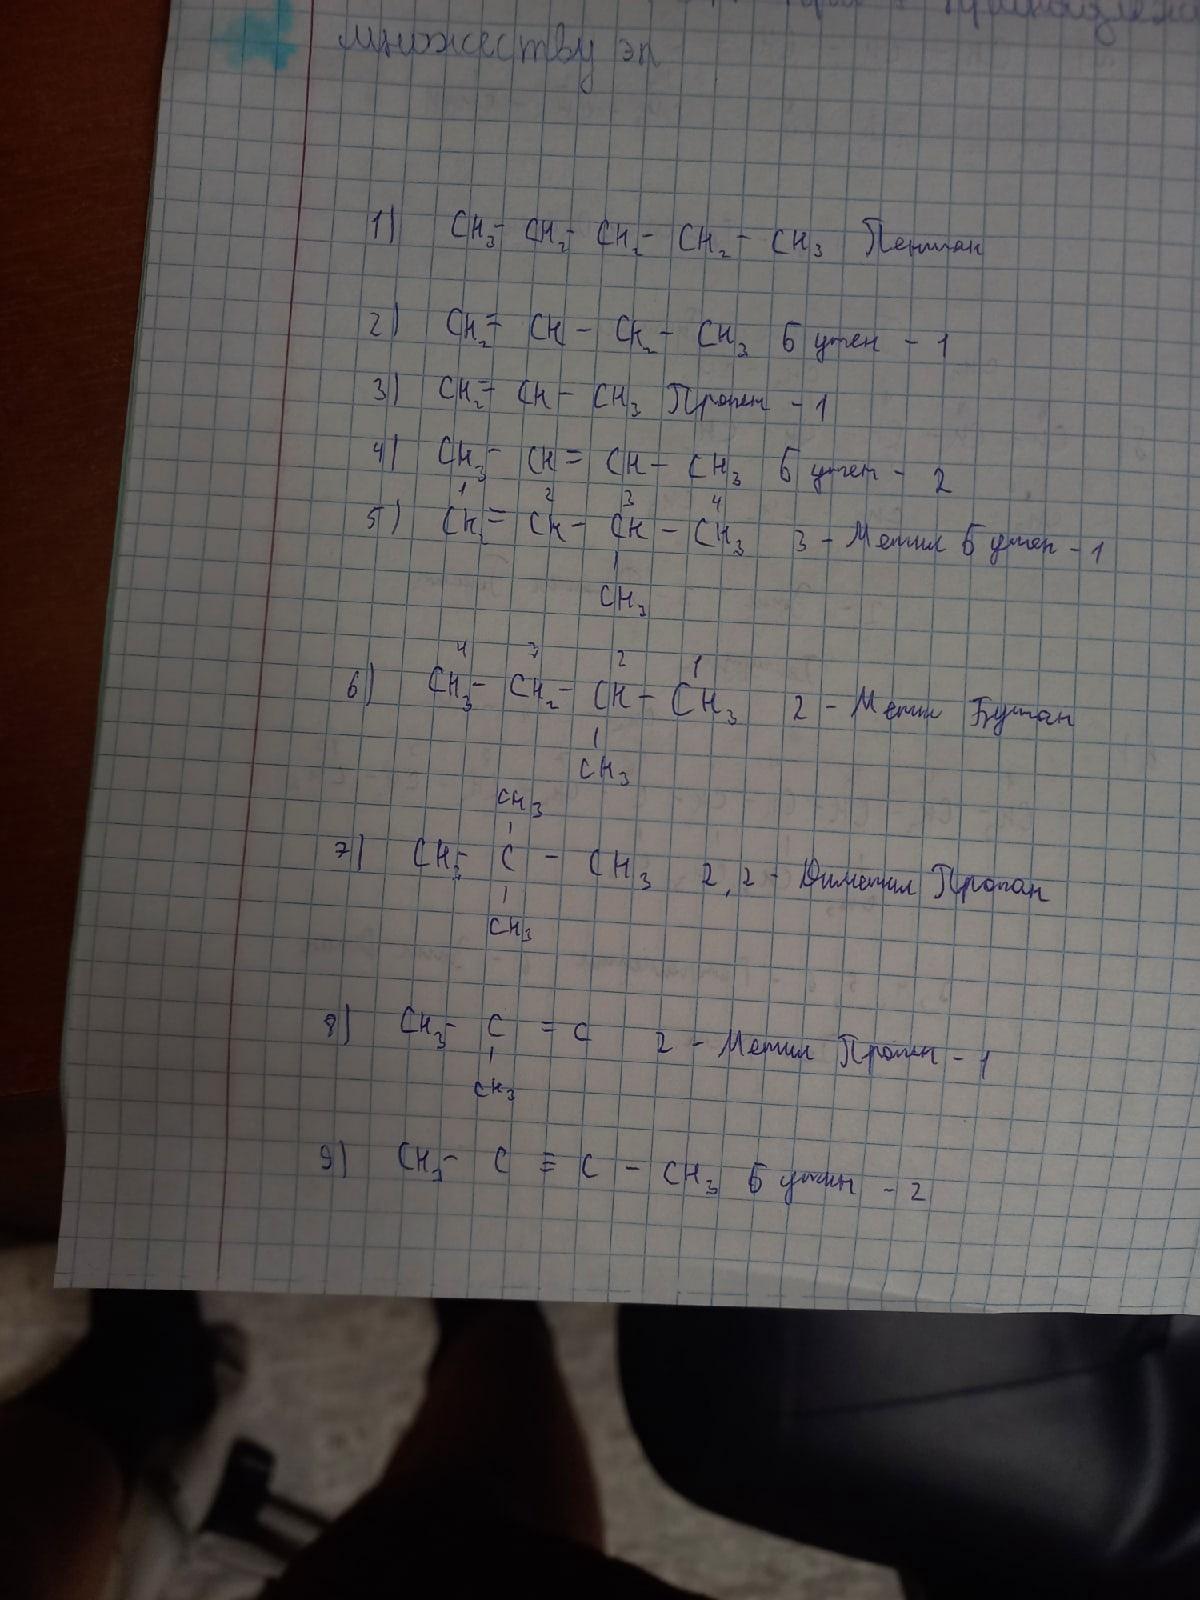 множеству эл
1) CH₃- CH₂- CH₂- CH₂- CH₃ Пентан
2) CH₂= CH - CH₂- CH₃ Бутен - 1
3) CH₂= CH - CH₃ Пропен - 1
4) CH₃- CH = CH - CH₃ Бутен - 2
1 2 3 4
5) CH₂= CH - CH - CH₃ 3 - Метил Бутен - 1
CH₃
4 3 2 1
6) CH₃- CH₂- CH - CH₃ 2 - Метил Бутан
CH₃
CH₃
7) CH₃- C - CH₃ 2,2 - Диметил Пропан
CH₃
8) CH₃- C = C 2 - Метил Пропен - 1
CH₃
9) CH₃- C ≡ C - CH₃ Бутин - 2